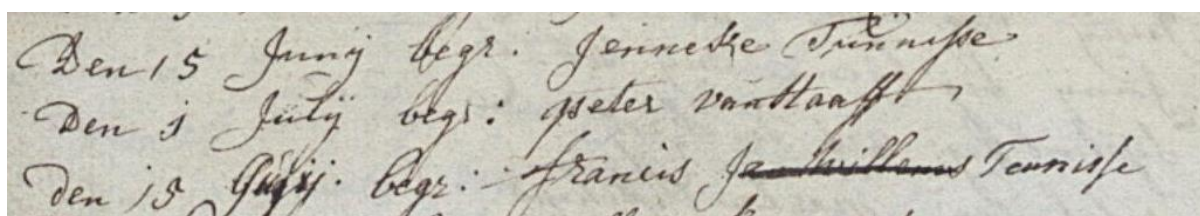 Den 15 Junij begr. Jenneke Tünnisse
Den 1 Julij begr: peter van Haafft
den 15 begr: francis Jan Willems Teunisse